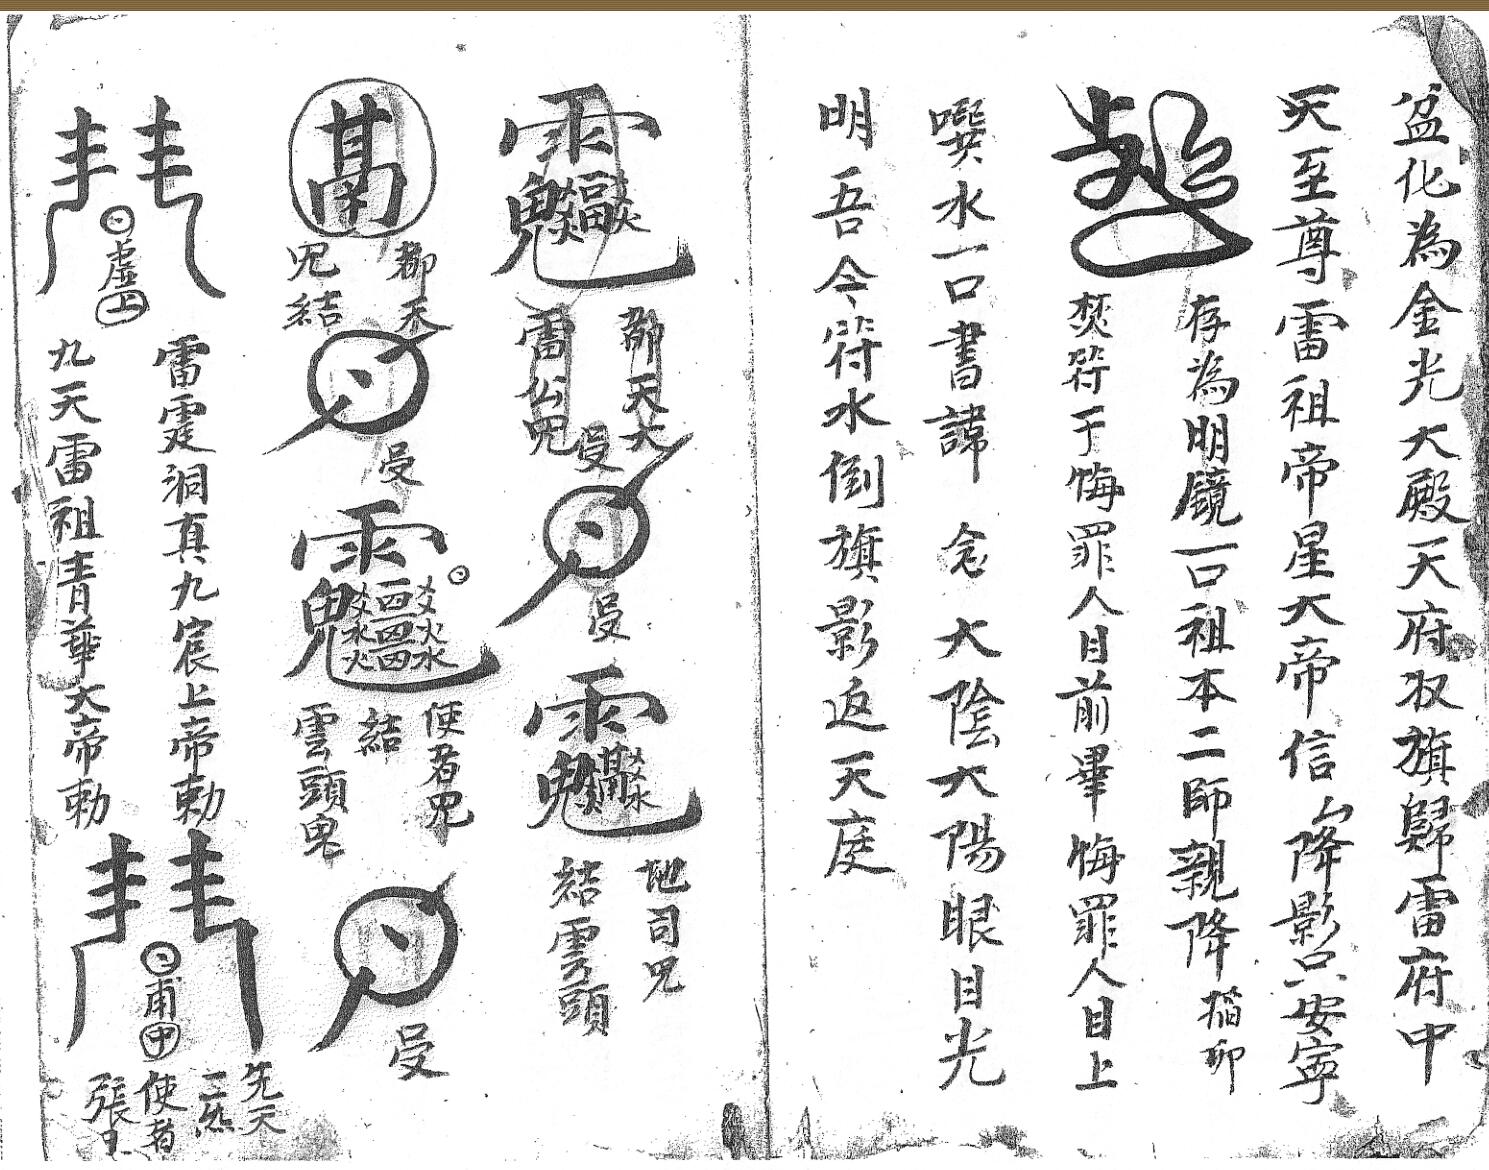 盆化為金光大殿天府収旗歸雷府中
天至尊雷祖帝星大帝信㕥降影只安寧
存為明鏡一口祖本二師親降
焚符于悔罪人目前畢悔罪人目上
噀水一口書諱 念 大陰大陽眼目光
明吾今符水倒旗影返天庭
都天大
雷公咒
受
受
地司咒
結雲頭
都天
咒結
受
使者咒
結
雲頭鬼
受
雷霆洞真九宸上帝勅
九天雷祖青華大帝勅
虛上
甫中
先天
一炁
使者
張